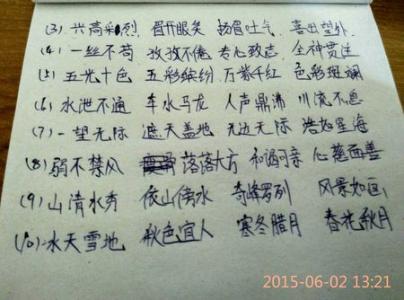 (3). 兴高彩烈 眉开眼笑 扬眉吐气 喜出望外
(4) 一丝不苟 孜孜不倦 专心致志 全神贯注
(5) 五光十色 五彩缤纷 万紫千红 色彩斑斓
(6) 水泄不通 车水马龙 人声鼎沸 川流不息
(7) 一望无际 遮天盖地 无边无际 浩如星海
(8) 弱不禁风 落落大方 和谒可亲 心慈面善
(9) 山清水秀 依山傍水 奇峰罗列 风景如画
(10) 水天雪地 秋色宜人 寒冬腊月 春花秋月
2015-06-02 13:21